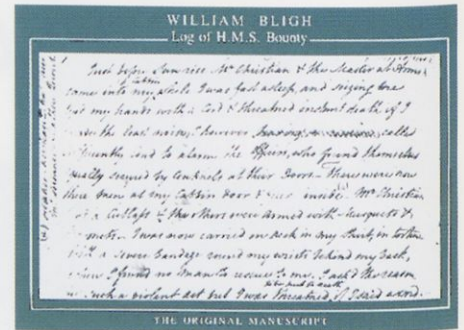 WILLIAM BLIGH
Log of H.M.S. Bounty
Just before Sunrise Mr Christian & the Master at Arms
came into my while I was fast asleep, and seizing me
my hands with a Cord & threatned instant death if I
the least noise. I however called
sufficiently loud to alarm the Officers, who found themselves
equally secured by centinels at their Doors. There were now
three men at my Cabbin door & four inside. Mr Christian
a Cutlass & the others were armed with Musquets &
I was now carried on deck in my Shirt, in torture
with a severe bandage round my wrists behind my back,
where I found no man to rescue me. I ask'd the reason
such a violent act but I was threatned if I said a word.
THE ORIGINAL MANUSCRIPT